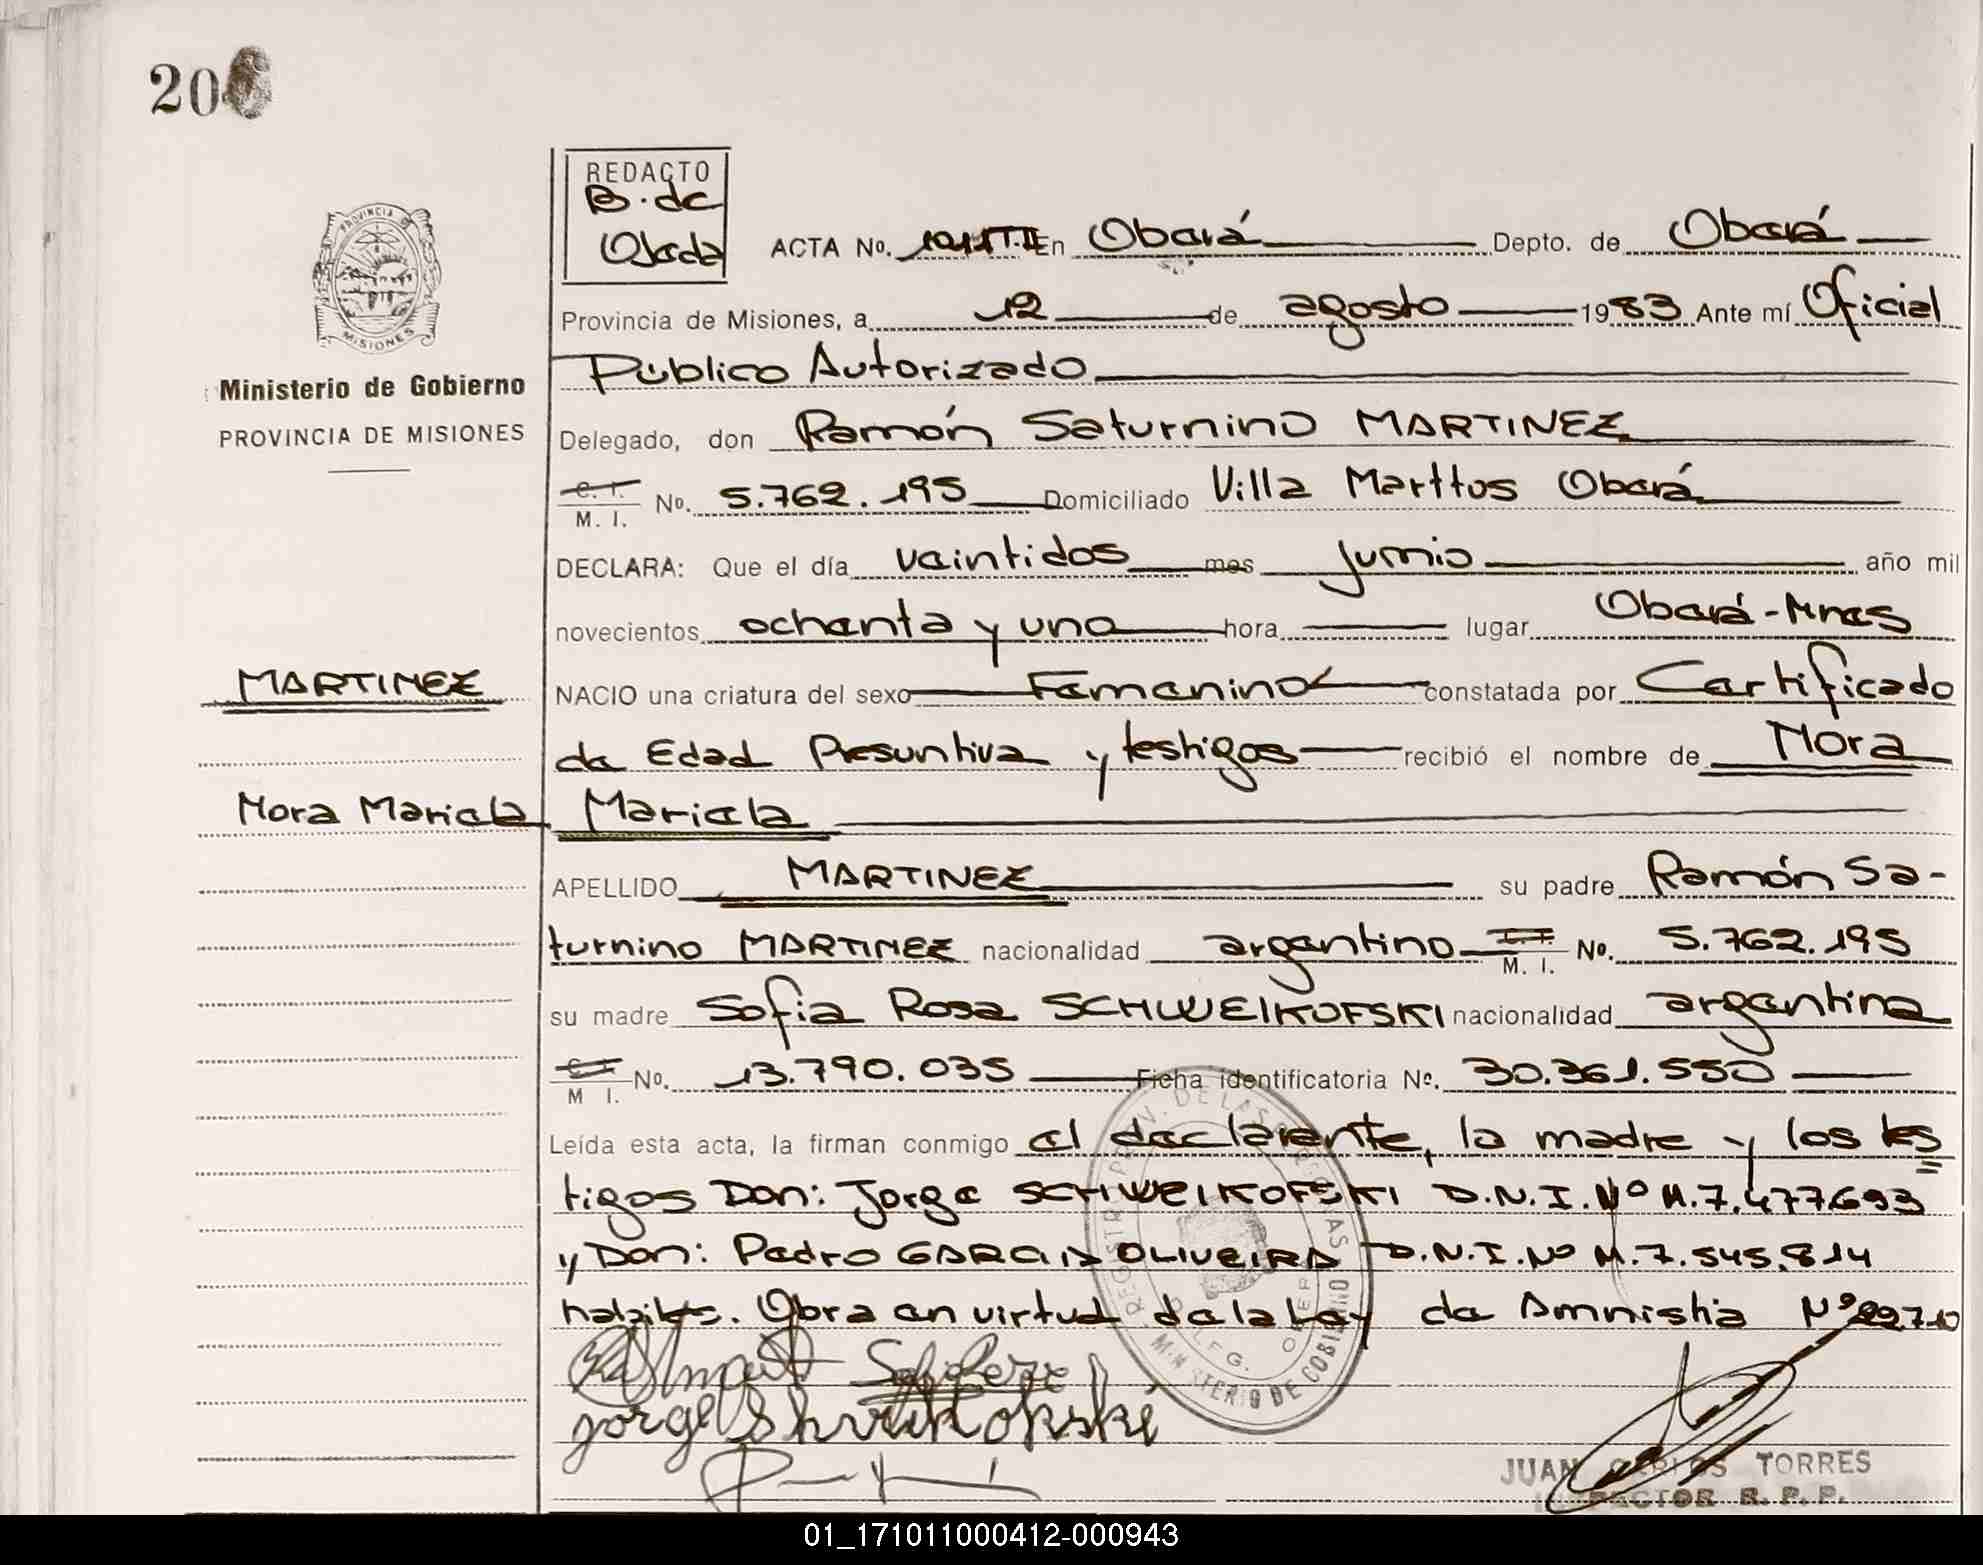 20
REDACTO
B. de
Ojeda
ACTA No. 1011T.II En Oberá Depto. de Oberá
Provincia de Misiones, a 12 de agosto 1983 Ante mí Oficial
Público Autorizado
PROVINCIA DE
MISIONES
Ministerio de Gobierno
PROVINCIA DE MISIONES
Delegado, don Ramón Saturnino MARTINEZ
C. I.
M. I. No. 5.762.195 Domiciliado Villa Marttos Oberá
DECLARA: Que el día veintidos mes junio año mil
novecientos ochenta y uno hora lugar Oberá-Mnes
MARTINEZ
NACIO una criatura del sexo Femenino constatada por Certificado
de Edad Presuntiva y testigos recibió el nombre de Nora
Nora Mariela
Mariela
APELLIDO MARTINEZ su padre Ramón Sa-
turnino MARTINEZ nacionalidad argentino M. I. No. 5.762.195
su madre Sofia Rosa SCHWEIKOFSKI nacionalidad argentina
M I. No. 13.790.035 Ficha identificatoria No. 30.361.550
Leída esta acta, la firman conmigo el declarante, la madre y los tes
tigos Don: Jorge SCHWEIKOFSKI D.N.I. Nº M.7.477693
y Don: Pedro GARCIA OLIVEIRA D.N.I. Nº M.7.545.814
habiles. Obra en virtud de la Ley de Amnistia Nº 22.710
REGISTRO PROV. DE LAS PERSONAS
MINISTERIO DE GOBIERNO
JUAN CARLOS TORRES
INSPECTOR R. P. P.
01_171011000412-000943